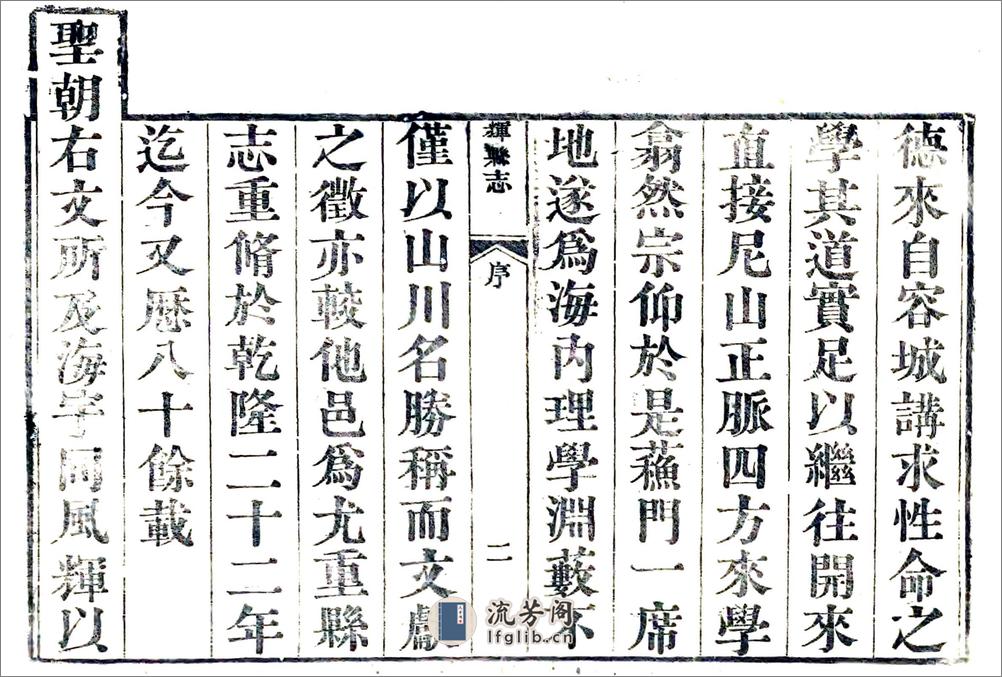 德來自容城講求性命之
學其道實足以繼往開來
直接尼山正脈四方來學
翕然宗仰於是蘓門一席
地遂為海内理學淵藪不
輝縣志
序
二
僅以山川名勝稱而文獻
之徵亦較他邑為尤重縣
志重脩於乾隆二十二年
迄今又歷八十餘載
聖朝右文所及海宇同風輝以
流芳阁
lfglib.cn